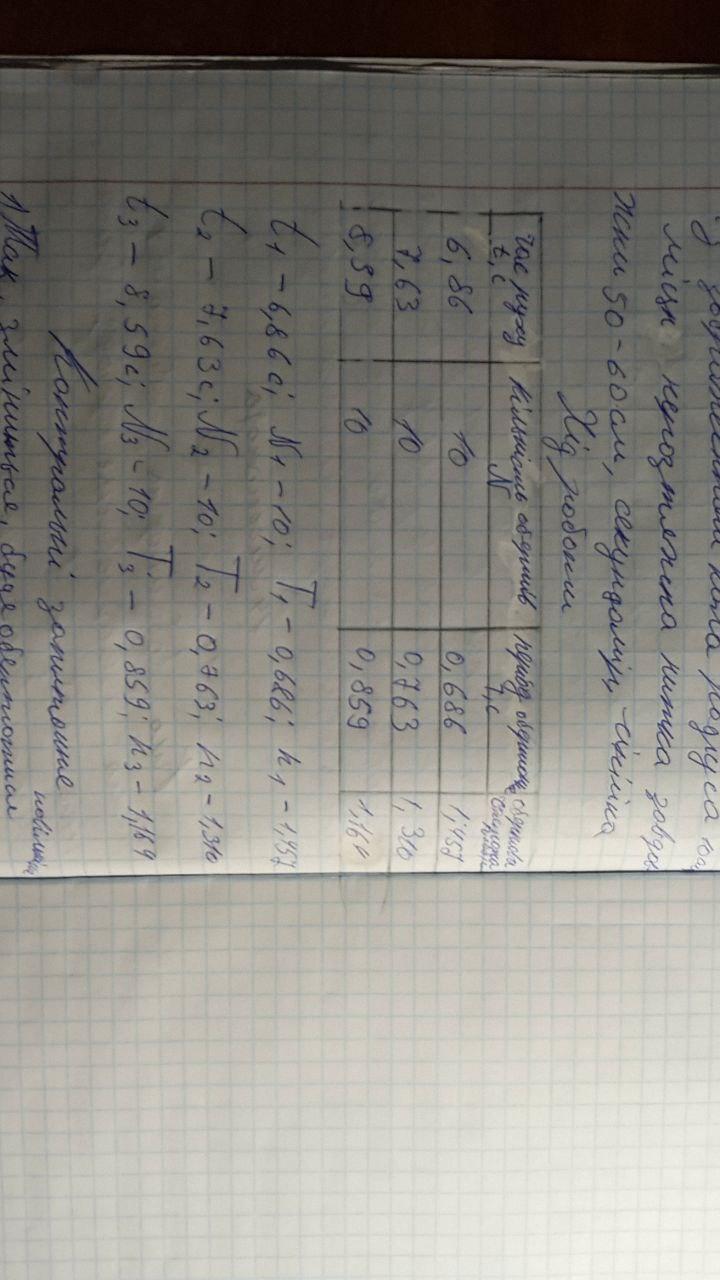 з
міцн нерозтяжна нитка завдов
жки 50-60см, секундомір, -лінійка
Хід роботи
Час руху t, с | Кількість обертів N | період обертання T, с | обертова
6,86 | 10 | 0,686 | 1,457
7,63 | 10 | 0,763 | 1,310
8,59 | 10 | 0,859 | 1,164
t1 – 6,86с; N1 – 10; T1 – 0,686; n1 – 1,457
t2 – 7,63с; N2 – 10; T2 – 0,763; n2 – 1,310
t3 – 8,59с; N3 – 10; T3 – 0,859; n3 – 1,164
Контрольні запитання
1) Так, зміниться, буде обертатися повільніше